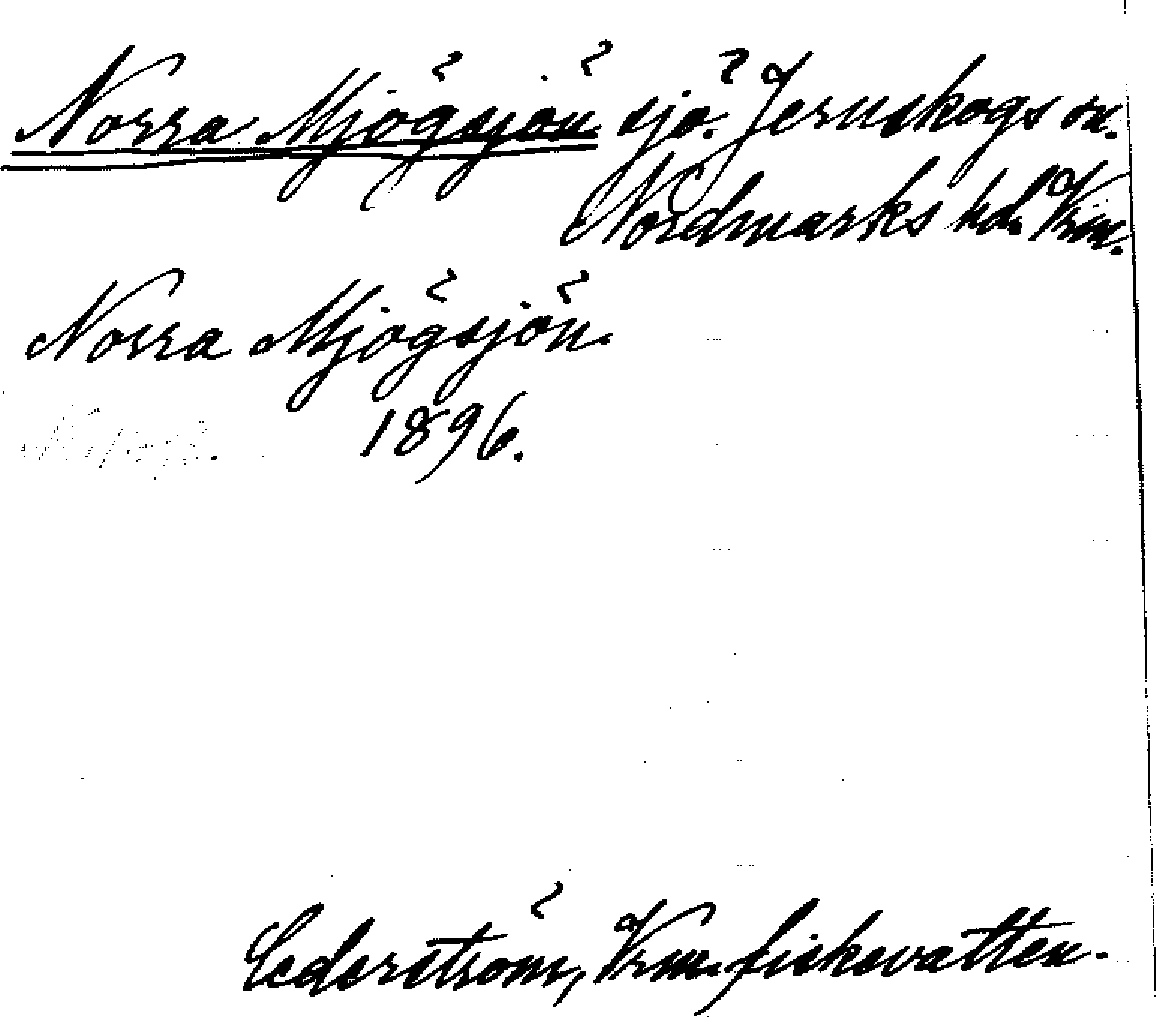 Norra Mjögsjön sjö. Jernskogs sn.
Nordmarks hd. Vrm.
Norra Mjögsjön.
1896.
Cederström, Vrm. fiskevatten.